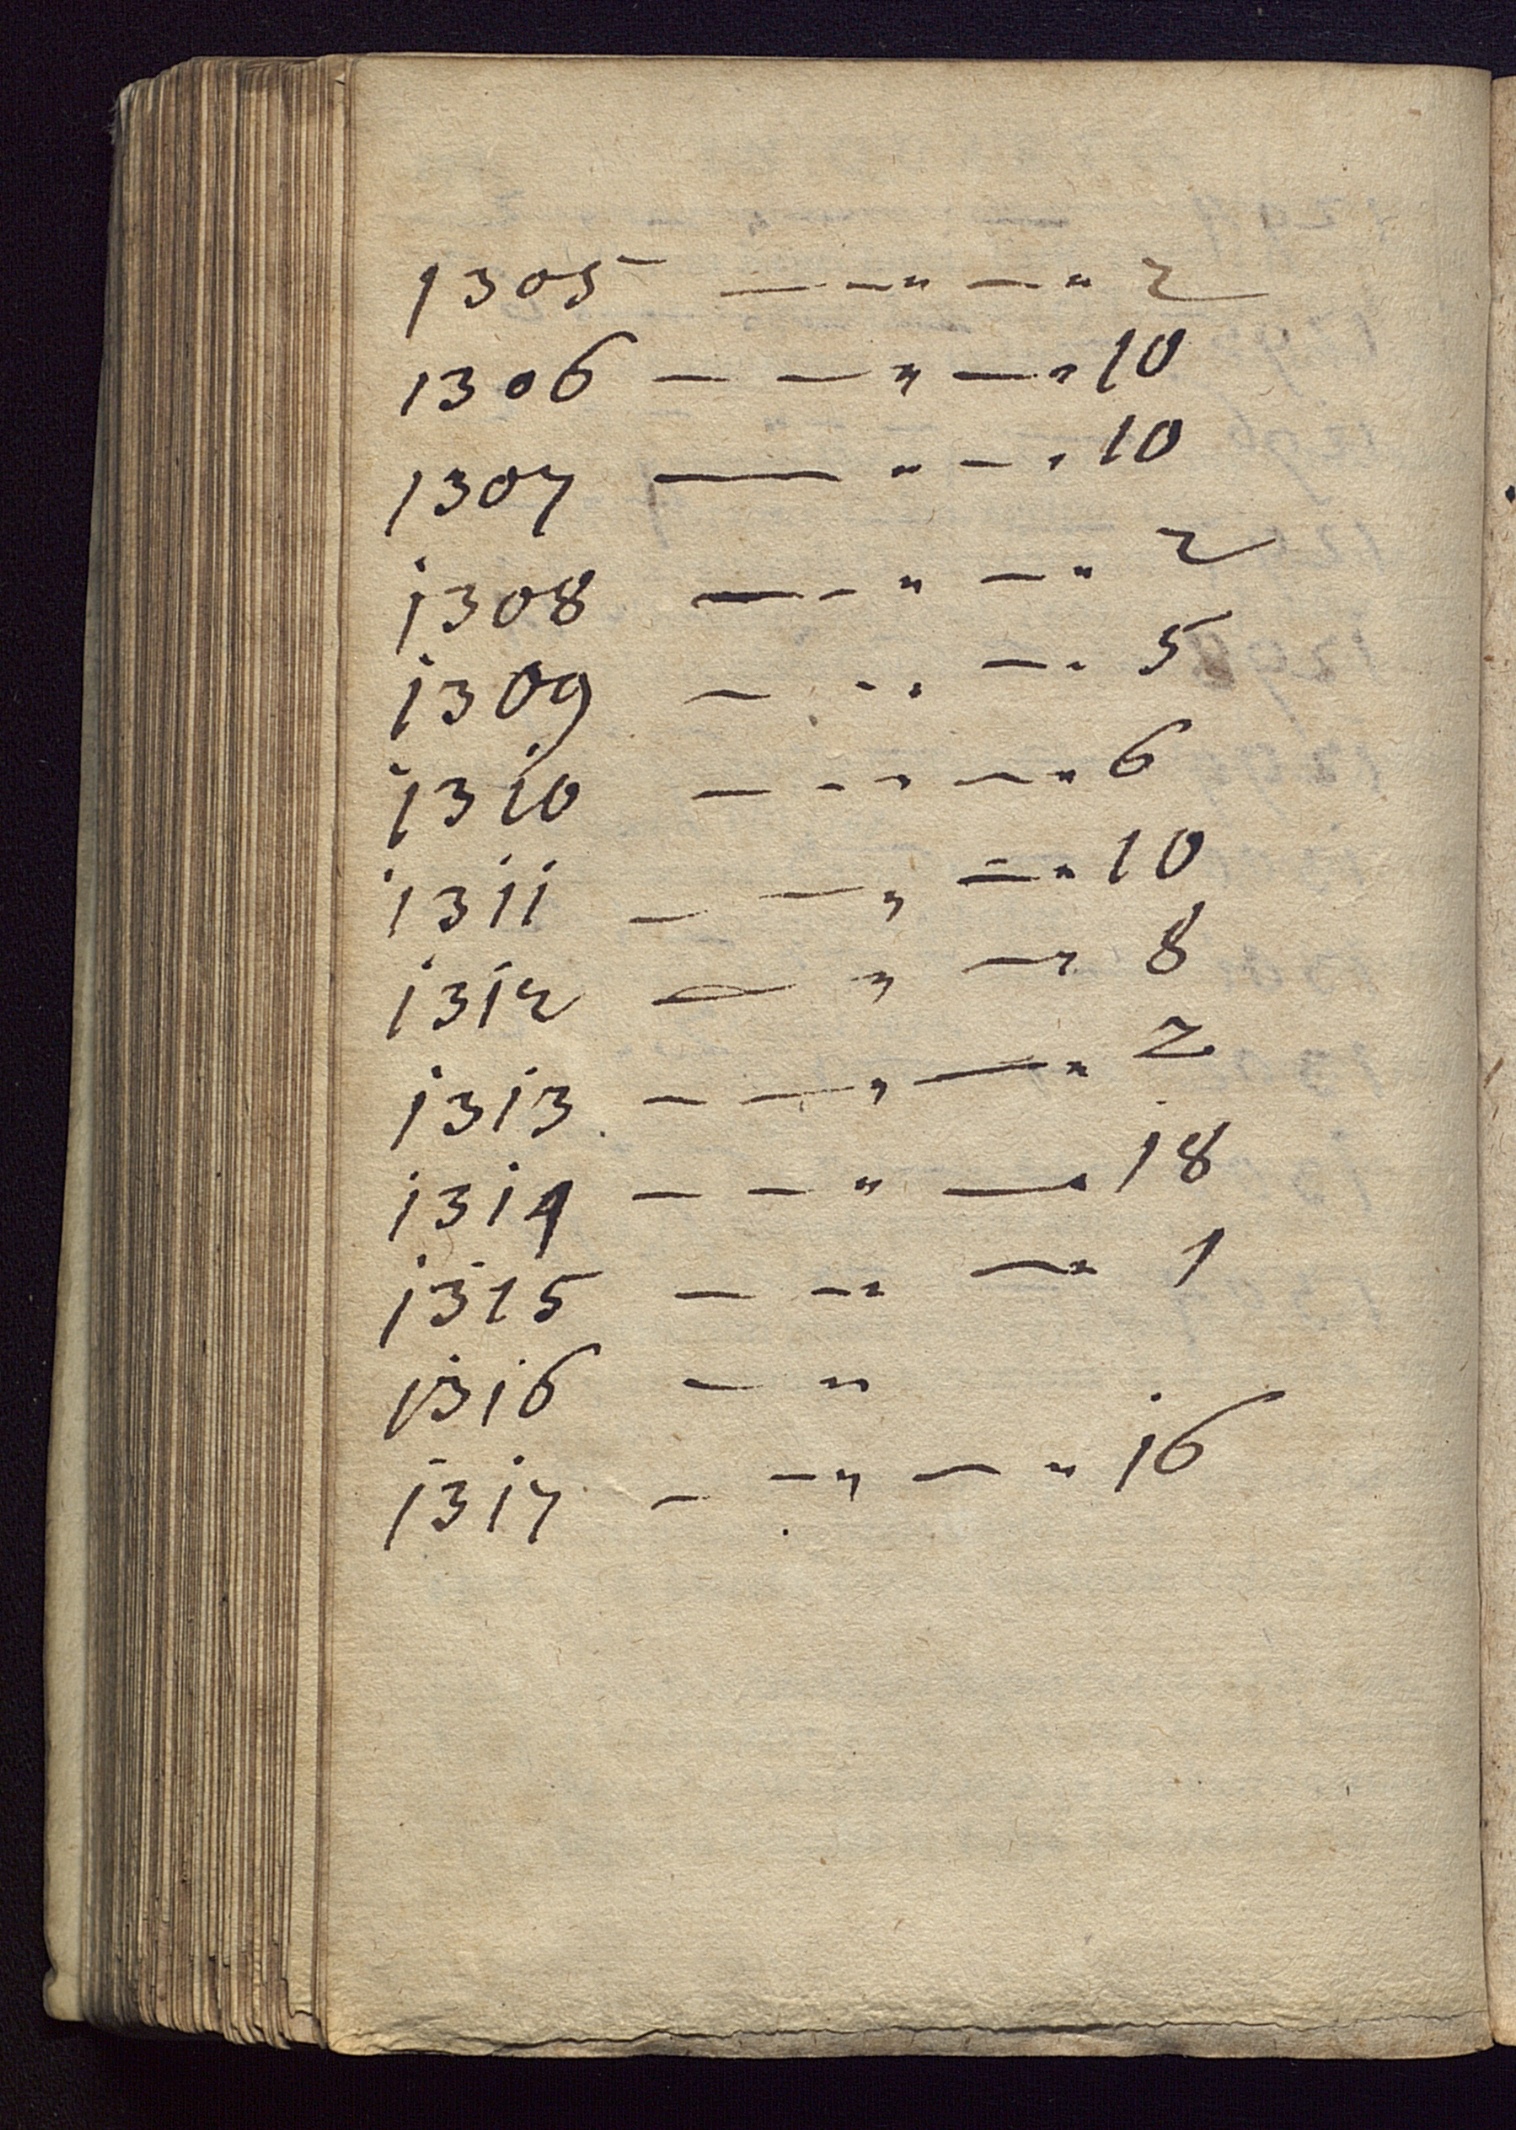 1305 — - „ — „ 2
1306 — — „ — „ 10
1307 — „ — „ 10
1308 — - „ — „ 2
1309 — - „ — „ 5
1310 — - „ — „ 6
1311 — — „ — „ 10
1312 — „ — „ 8
1313 — — „ — „ 2
1314 — — „ — „ 18
1315 — - „ — „ 1
1316 — „
1317 — - „ — „ 16